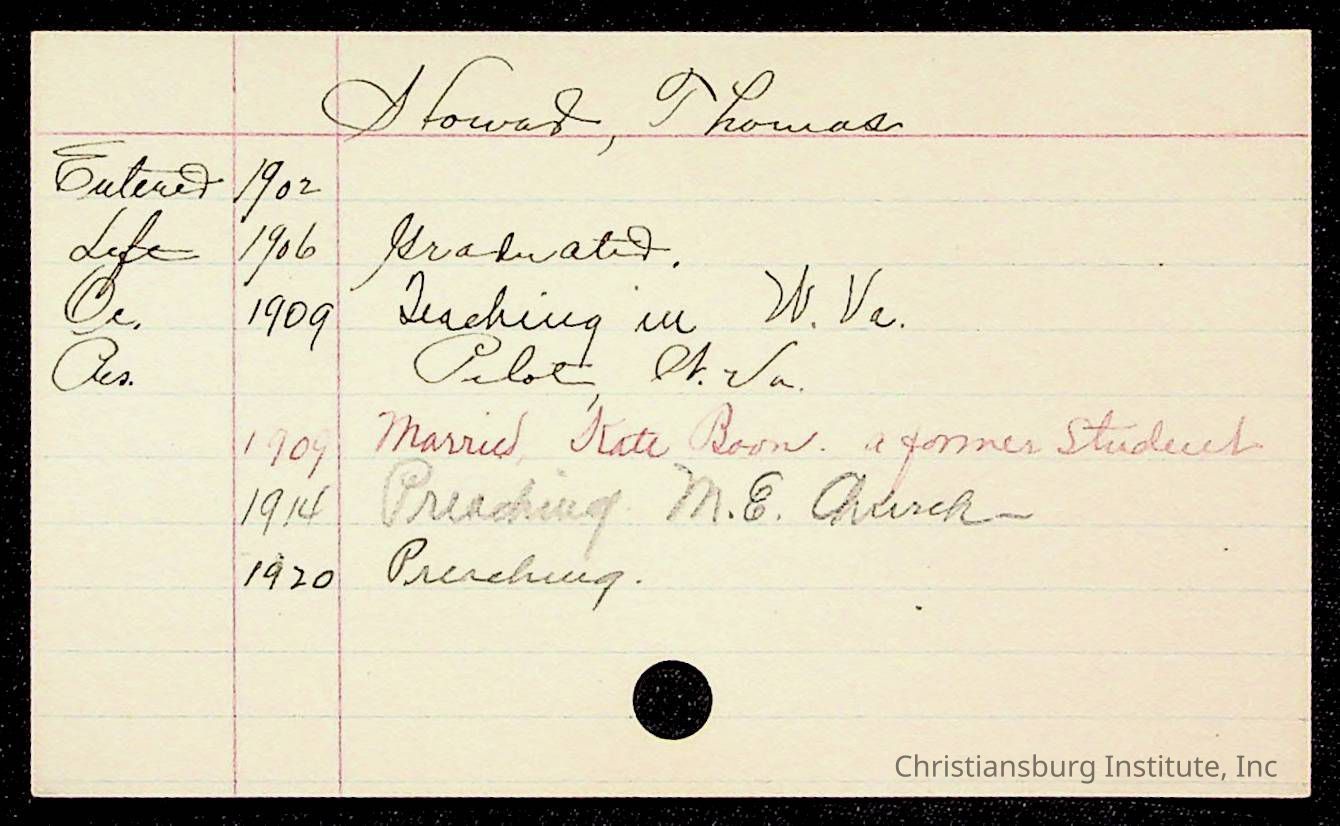 Howard, Thomas
Entered 1902
Left 1906 Graduated.
Oc. 1909 Teaching in W. Va.
Res. Pilot, W. Va.
1909 Married, Kate Boon. a former Student
1914 Preaching M.E. Church
1920 Preaching.
Christiansburg Institute, Inc